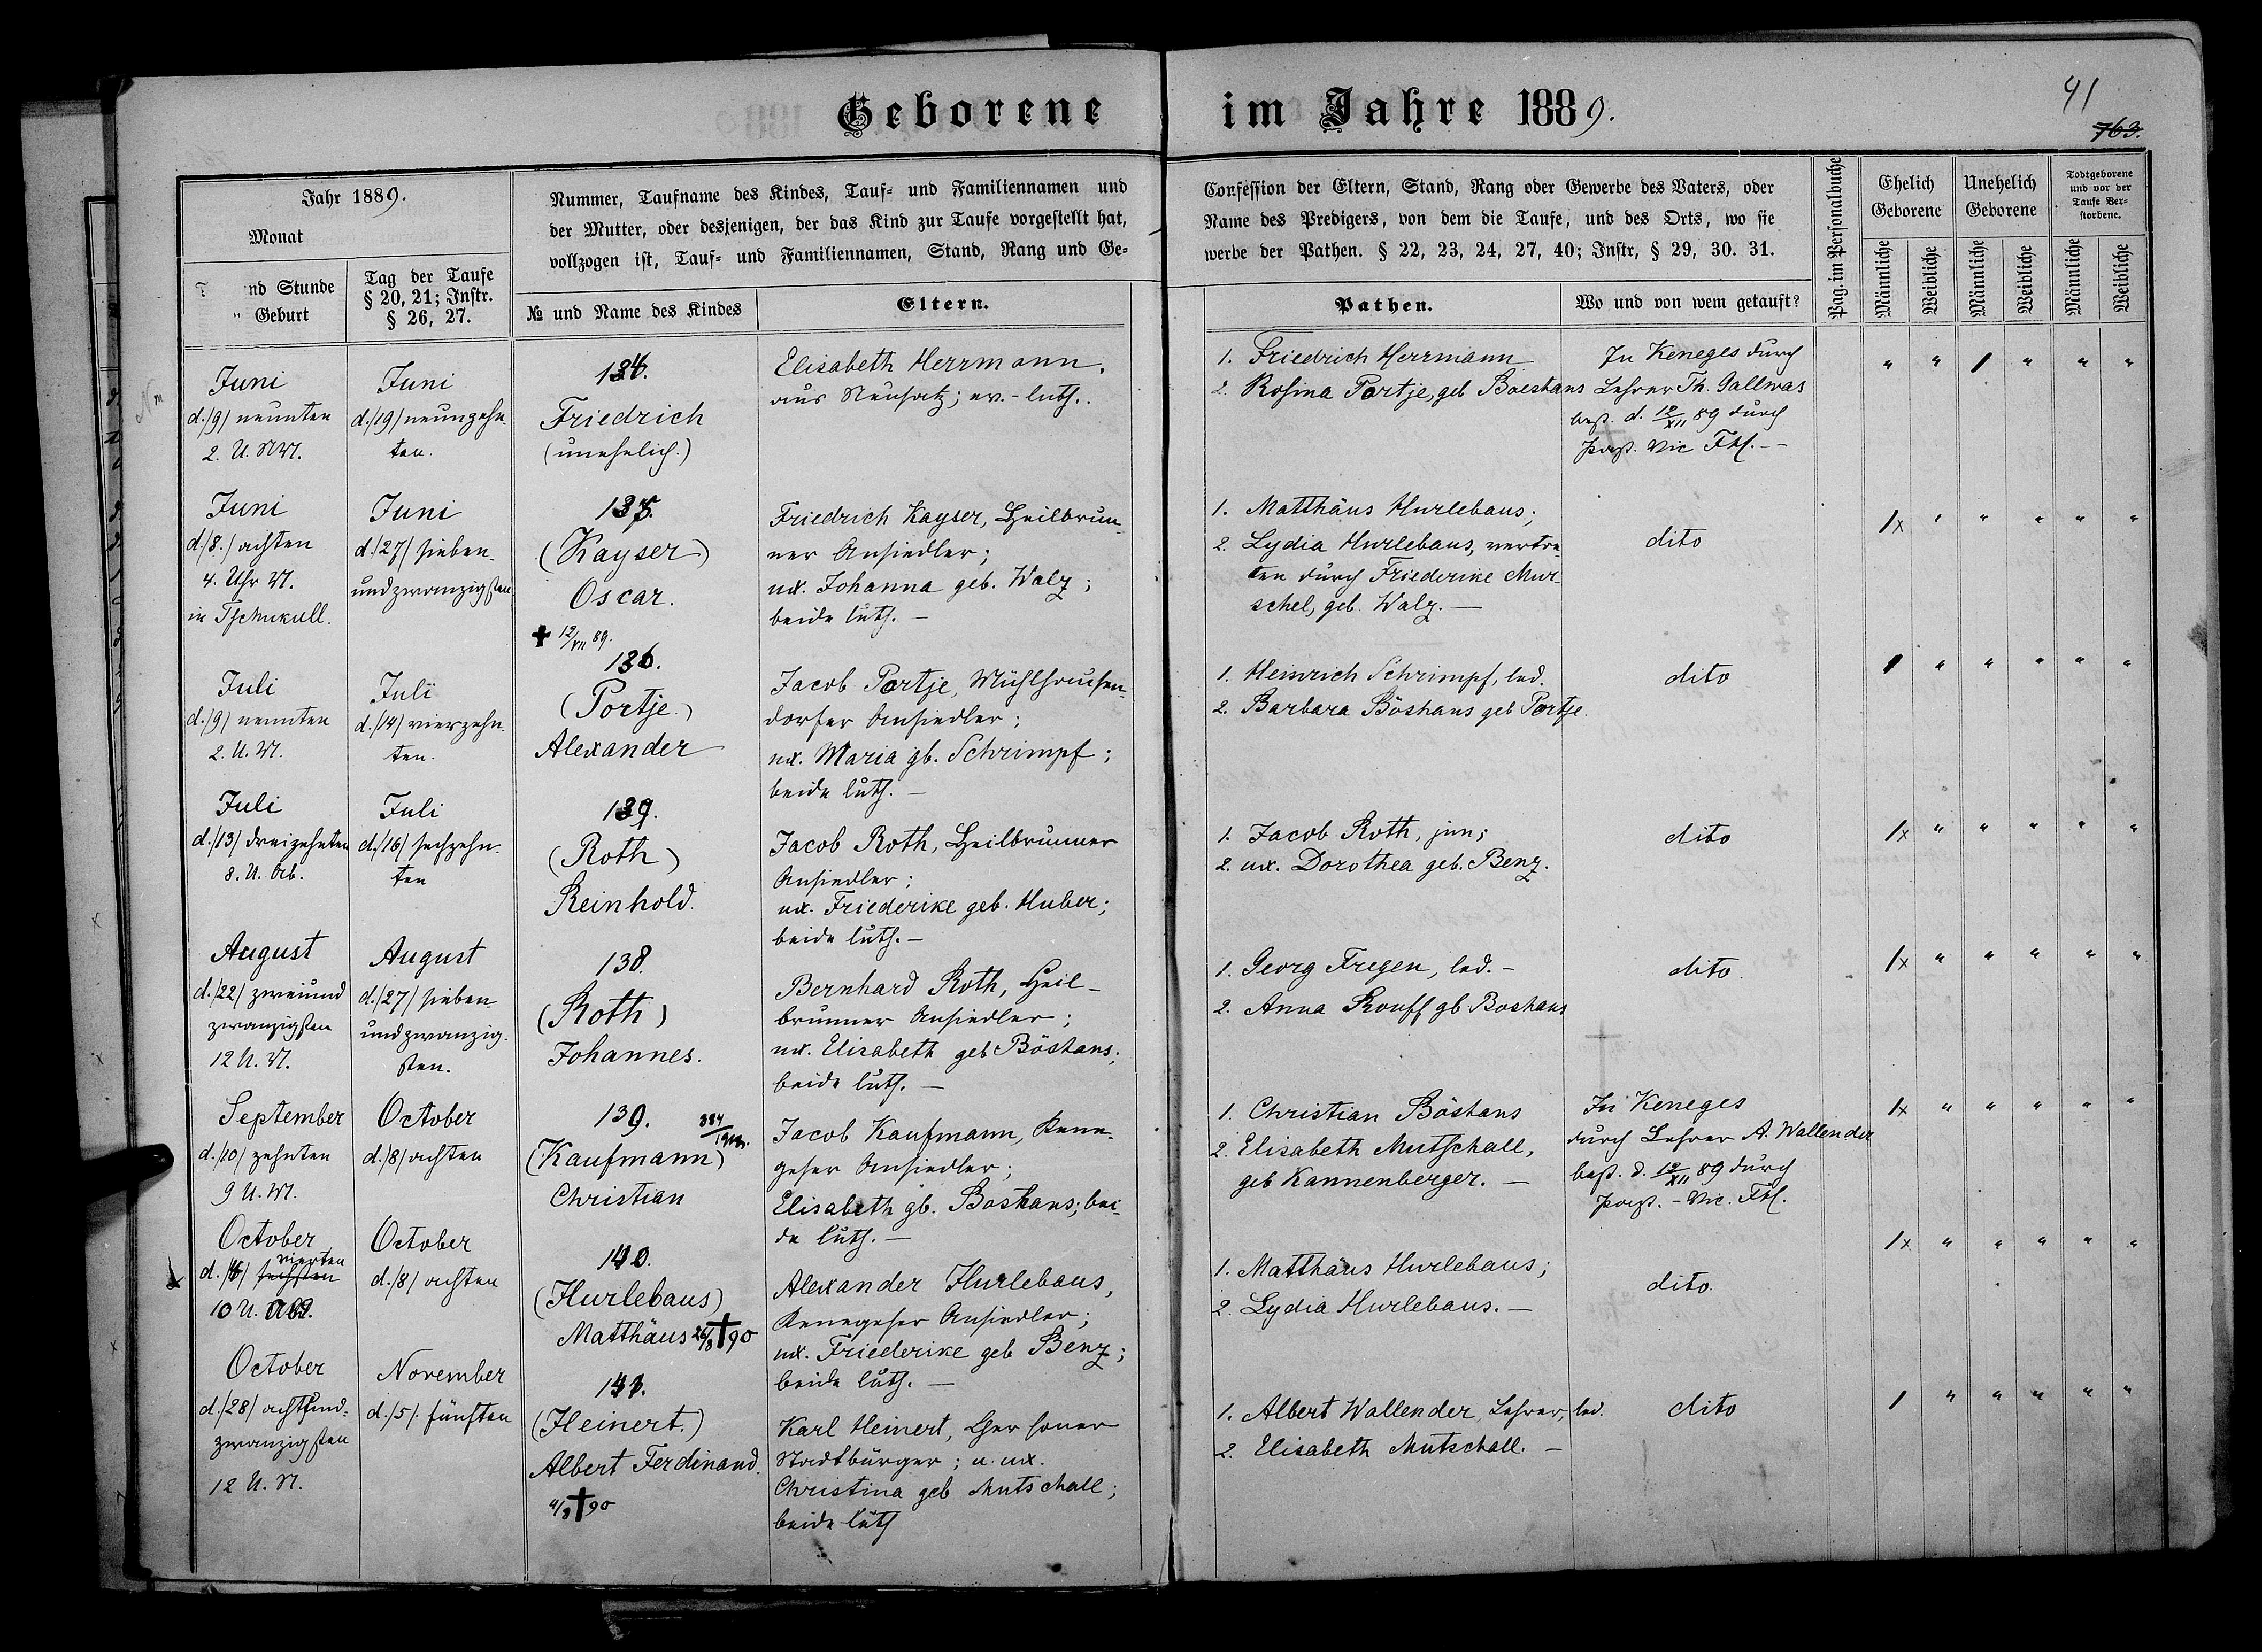 Geborene im Jahre 1889.
91
763.
Jahr 1889.
Monat
nd Stunde
" Geburt
Tag der Taufe
§ 20, 21; Instr.
§ 26, 27.
Nummer, Taufname des Kindes, Tauf- und Familiennamen und
der Mutter, oder desjenigen, der das Kind zur Taufe vorgestellt hat,
vollzogen ist, Tauf- und Familiennamen, Stand, Rang und Ge-
№ und Name des Kindes
Eltern.
Confession der Eltern, Stand, Rang oder Gewerbe des Vaters, oder
Name des Predigers, von dem die Taufe, und des Orts, wo sie
werbe der Pathen. § 22, 23, 24, 27, 40; Instr, § 29, 30. 31.
Pathen.
Wo und von wem getauft?
Pag. im Personalbuche
Ehelich
Geborene
Unehelich
Geborene
Todtgeborene
und vor der
Taufe Ver-
storbene.
Männliche
Weibliche
Männliche
Weibliche
Männliche
Weibliche
Juni
d./9/ neunten
2. U.
Juni
d./19/ neunzehn-
ten.
134.
Friedrich
(unehelich.)
Elisabeth Herrmann.
aus Neusatz; ev.-luth..
1. Friedrich Herrmann
2. Rosina Portje, geb Boeshans
In Keneges durch
Lehrer Th. Gallwas
best. d. 12/XII 89 durch
Past. Vic
" " 1 " " "
Juni
d./8./ achten
4. Uhr M.
in Tschukull.
Juni
d./27/ sieben-
undzwanzigsten
135.
(Kayser)
Oscar.
✝ 12/VII 89.
Friedrich Kayser, Heilbrun-
ner Ansiedler;
ux. Johanna geb. Walz;
beide luth. —
1. Matthäus Hurlebaus;
2. Lydia Hurlebaus, vertre-
ten durch Friederike Mur-
schel, geb. Walz. —
dito
1x " " " " "
Juli
d./9/ neunten
2. U. M.
Juli
d./14/ vierzehn-
ten.
136.
(Portje.)
Alexander
Jacob Portje, Mühlhausen-
dorfer Ansiedler;
ux. Maria gb. Schrimpf;
beide luth. —
1. Heinrich Schrimpf, led.
2. Barbara Böshans geb Portje.
dito
1 " " " " "
Juli
d./13/ dreizehnten
8. U. Ab.
Juli
d./16/ sechzehn-
ten
(Roth)
Reinhold.
Jacob Roth, Heilbrunner
Ansiedler;
ux. Friederike geb. Huber;
beide luth. —
1. Jacob Roth, jun;
2. ux. Dorothea geb. Benz.
dito
1x " " " " "
August
d./22/ zweiund
zwanzigsten
12 U. M.
August
d./27/ sieben-
undzwanzig-
sten.
138.
(Roth)
Johannes.
Bernhard Roth, Heil-
brunner Ansiedler;
ux. Elisabeth geb Böshans;
beide luth. —
1. Georg Fregen, led. -
2. Anna Rouff gb Boshans
dito.
1x " " " " "
September
d./10/ zehnten
9 U. M.
October
d./8/ achten
139.
(Kaufmann)
Christian
Jacob Kaufmann, Kene-
geser Ansiedler;
Elisabeth gb. Boshans; bei-
de luth. —
1. Christian Böshans
2. Elisabeth Mutschall,
geb Kannenberger. —
In Keneges
durch Lehrer A. Wallender
best. d. 12/XII 89 durch
Past. - Vic.
1x " " " " "
October
vierten
d./4/ sechsten
10 U.
October
d./8/ achten
140.
(Hurlebaus)
Matthäus 26/8 ✝ 90
Alexander Hurlebaus,
Kenegeser Ansiedler;
ux. Friederike geb Benz;
beide luth. —
1. Matthäus Hurlebaus;
2. Lydia Hurlebaus. —
dito.
1x " " " " "
October
d./28/ achtund-
zwanzigsten
12 U. M.
November
d./5/. fünften
141.
(Heinert.)
Albert Ferdinand.
4/8 ✝ 90
Karl Heinert, Chersoner
Stadtbürger; u. ux.
Christina geb Mutschall;
beide luth
1. Albert Wallender, Lehrer, led.
2. Elisabeth Mutschall. —
dito
1 " " " " "